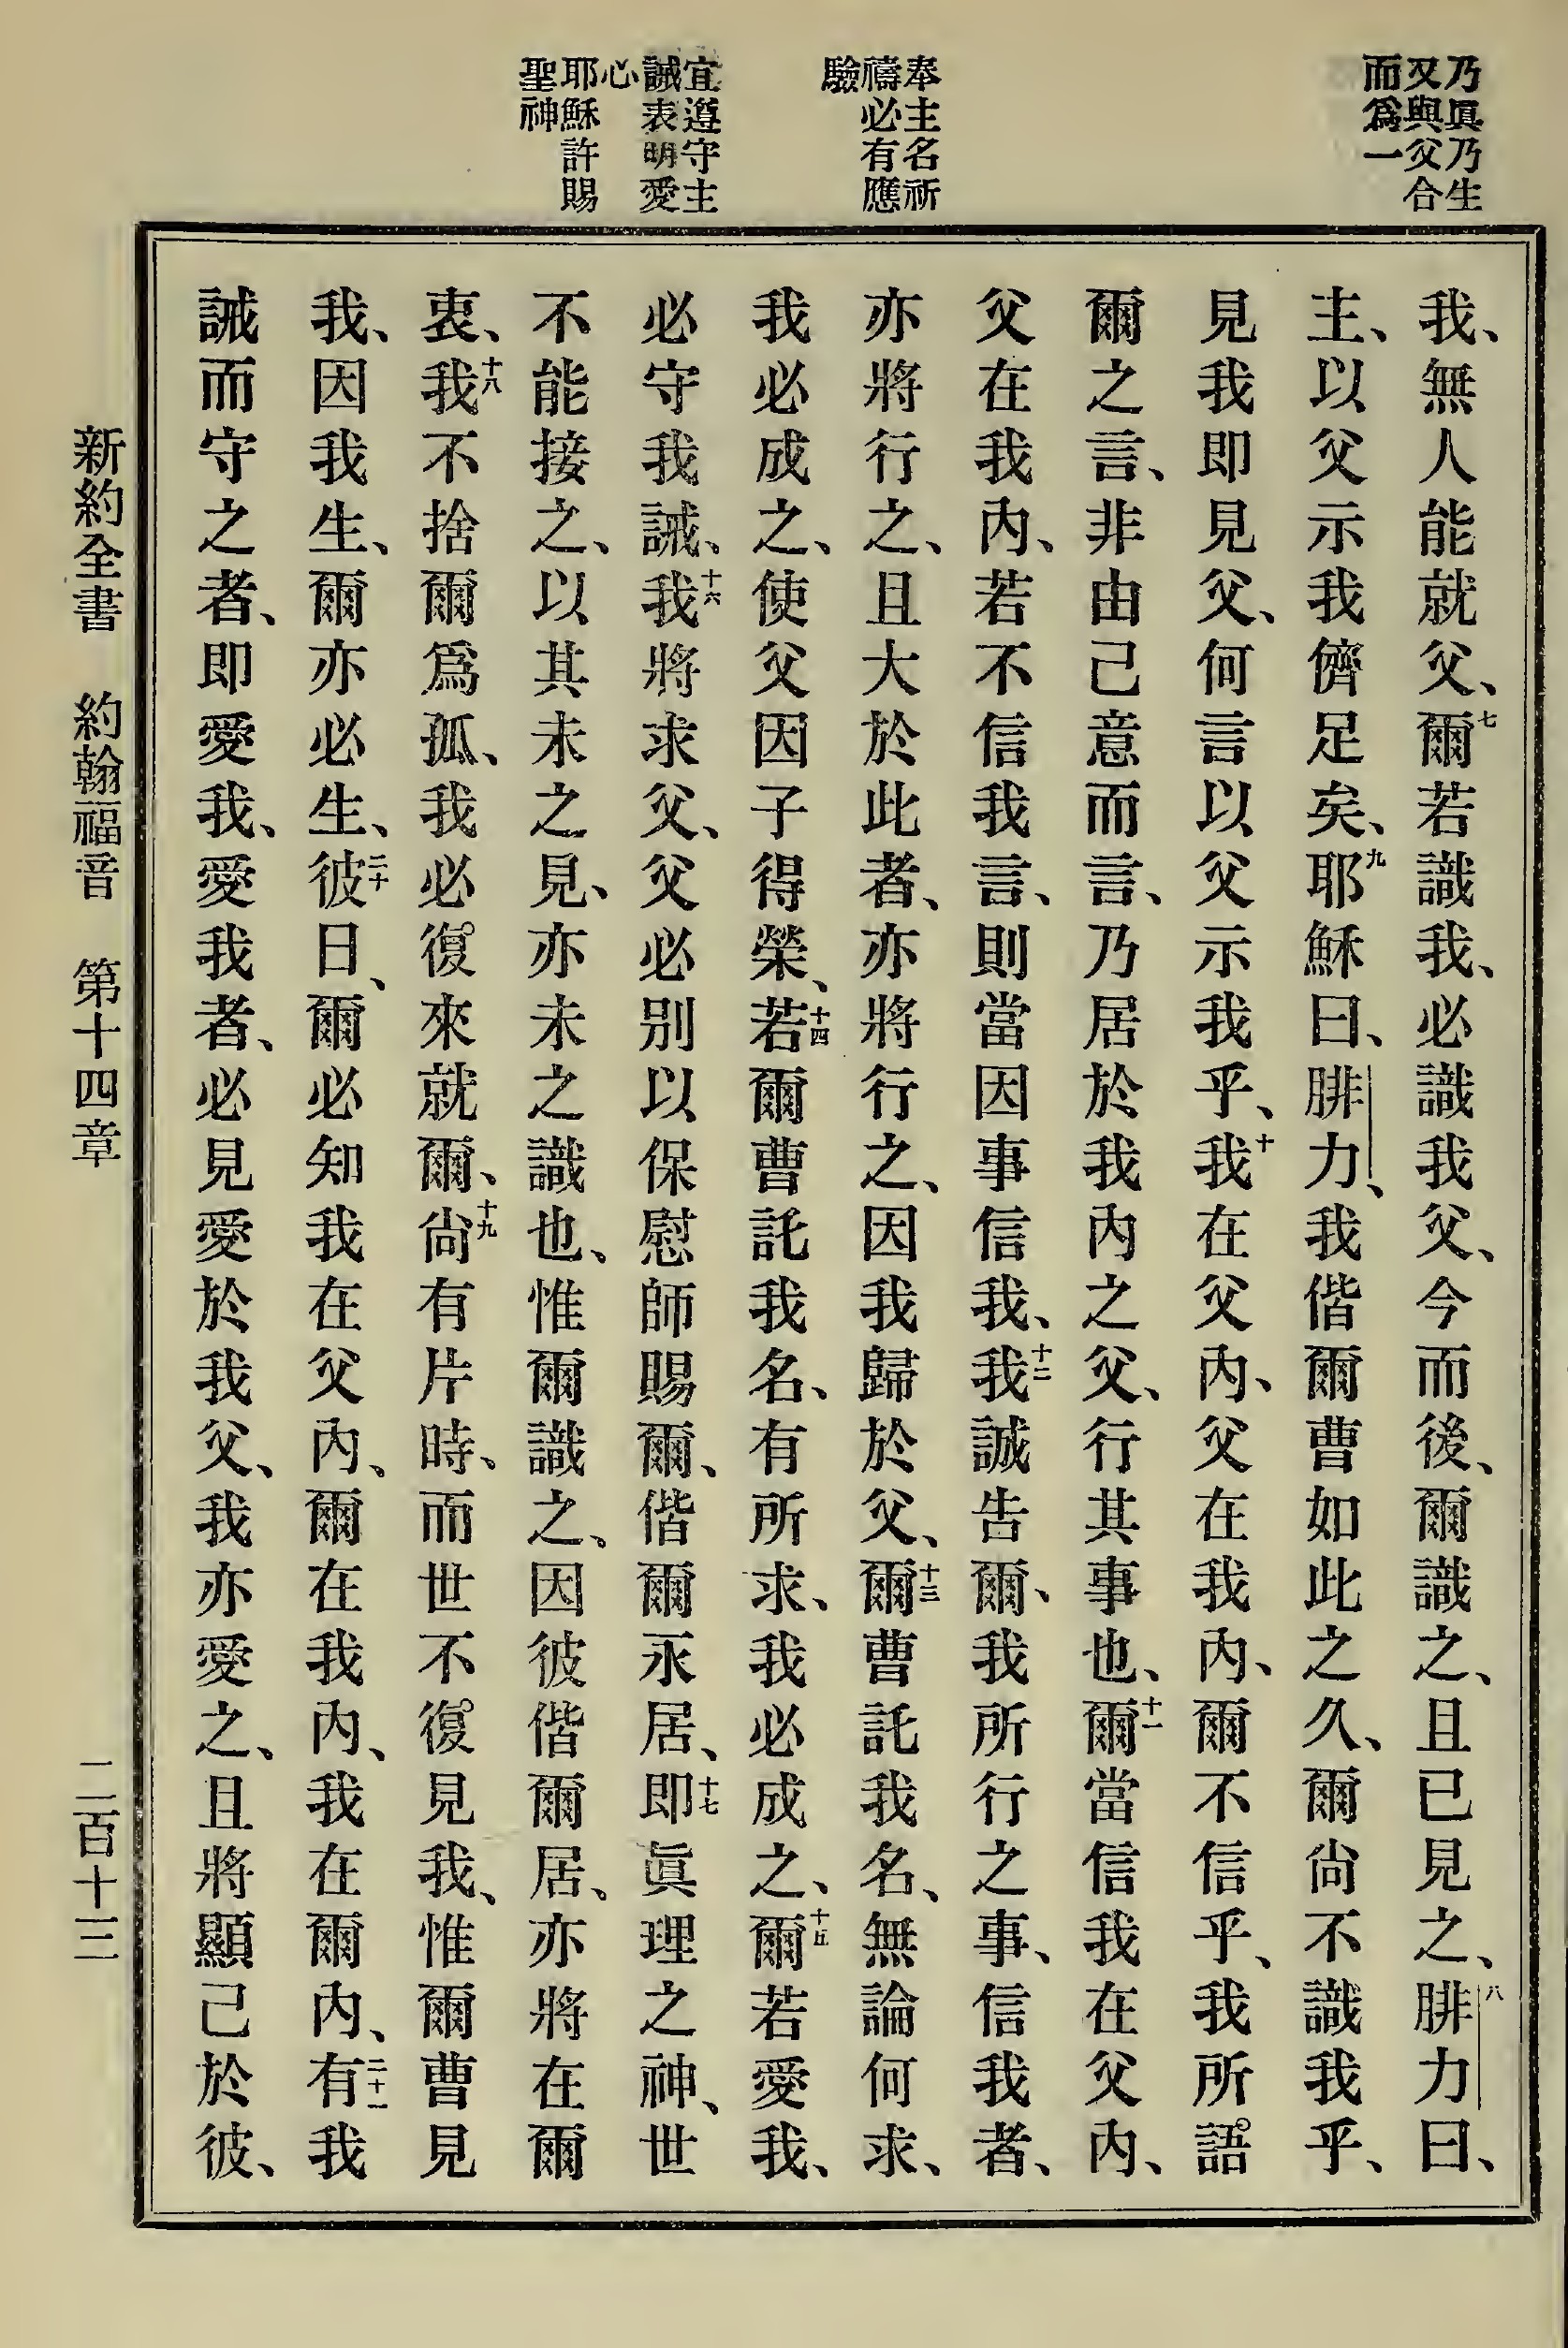 乃眞乃生
又與父合
而爲一
奉主名祈
禱必有應
驗
宜遵守主
誡表明愛
心
耶穌許賜
聖神
我、無人能就父、七爾若識我、必識我父、今而後、爾識之、且已見之、八腓力曰、
主、以父示我儕足矣、九耶穌曰、腓力、我偕爾曹如此之久、爾尙不識我乎、
見我即見父、何言以父示我乎、十我在父內、父在我內、爾不信乎、我所語
爾之言、非由己意而言、乃居於我內之父、行其事也、十一爾當信我在父內、
父在我內、若不信我言、則當因事信我、十二我誠告爾、我所行之事、信我者、
亦將行之、且大於此者、亦將行之、因我歸於父、十三爾曹託我名、無論何求、
我必成之、使父因子得榮、十四若爾曹託我名、有所求、我必成之、十五爾若愛我、
必守我誡、十六我將求父、父必別以保慰師賜爾、偕爾永居、十七即眞理之神、世
不能接之、以其未之見、亦未之識也、惟爾識之、因彼偕爾居、亦將在爾
衷、十八我不捨爾爲孤、我必復來就爾、十九尙有片時、而世不復見我、惟爾曹見
我、因我生、爾亦必生、二十彼日、爾必知我在父內、爾在我內、我在爾內、二十一有我
誡而守之者、即愛我、愛我者、必見愛於我父、我亦愛之、且將顯己於彼、
新約全書 約翰福音 第十四章 二百十三